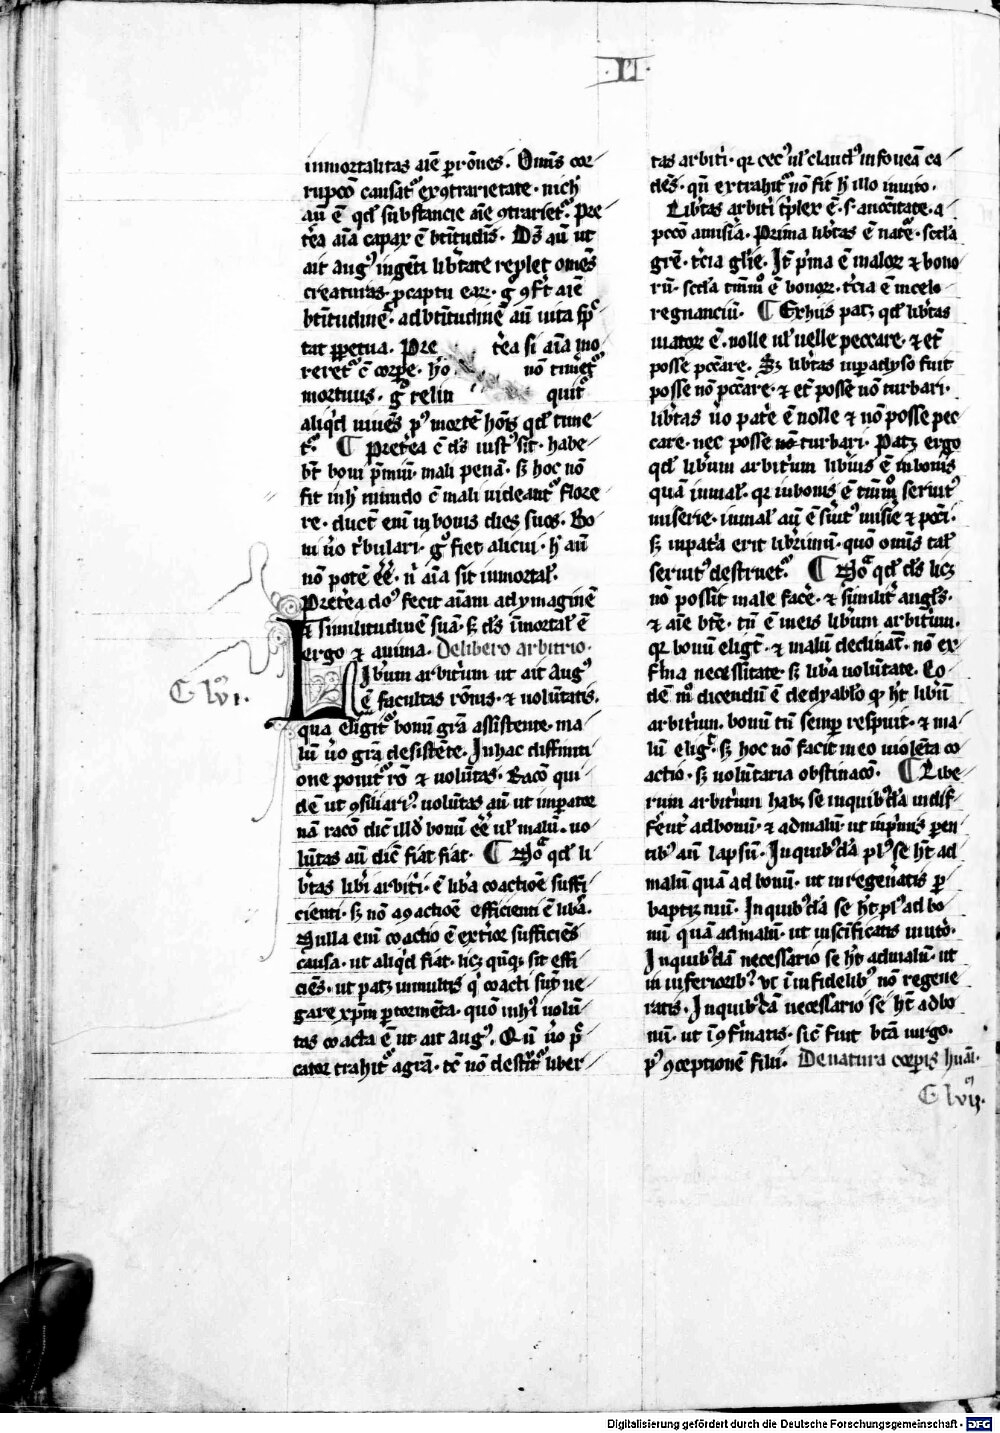 ·II·
inmortalitas aīe ꝑ rōnes. Om̄is cor
rupcō causat᷑ ex ꝯtrarietate. nich
aū ē qd̓ sūbstancie aīe ꝯtrariet᷑. Pre
tēa aīa capax ē btītudīs. Dꝰ aū ut
ait augꝰ ingēti lib̓tate replet om̄es
creaturas ꝓ captu eaꝝ. gͦ ꝯf̓t aīe
btītudinē. ad btītudinē aū uita spī
tat ꝑpetua. Pre tēa si aīa mo
reret᷑ cū corꝑe. hō nō timēt
mortuus. gͦ relin quit᷑
aliqd̓ uiuēs pꝰ mortē hōīs qd̓ time
t᷑. ¶ Pretēa cū dꝰ iustꝰ sit. habe
bt̄ boni p̄miū. mali penā. sꝫ hoc nō
fit in hͦ mundo cū mali uideant᷑ flore
re. ducūt enī in bonis dies suos. Bo
ni ūo t̓bulari. gͦ fiet alicui. hͦ aū
nō potē ēē. nͥ aīa sit inmortal̓.
Pretēa dꝰ fecit aīam ad ymaginē
⁊ similitudinē suā. sꝫ dꝰ īmortal̓ ē
ergo ⁊ anima. De libero arbitrio.
C. lvi.
Libūm arbit̓um ut ait augꝰ
ē facultas rōnis ⁊ uolūtatis.
qua eligit᷑ bonū gr̄a assistente. ma
lū ūo gr̄a desistēte. In hac diffiniti
one ponit᷑ rō ⁊ uolūtas. Racō qui
dē ut ꝯsiliariꝰ. uolūtas aū ut imꝑator
nā racō dic̄ illd̓ bonū ēē ul̓ malū. uo
lūtas aū dic̄ fiat fiat. ¶ Noͣ qd̓ li
b̓tas libi arbit̓i. ē lib̓a coactiōe suffi
cienti. sꝫ nō a coactiōe efficienti ē lib̓a.
Nulla enī coactio ē ext̓ior sufficiēs
causa. ut aliqd̓ fiat. licꝫ q̄nqꝫ sit effi
ciēs. ut patꝫ in multis qͥ coacti sūt ne
gare xp̄m ꝑ tormēta. quō in hiꝰ uolū
tas coacta ē ut ait augꝰ. Qn̄ ūo pc̄
cator trahit᷑ a gr̄a. tc̄ nō dest̓it᷑ liber
tas arbit̓i. qꝛ cecꝰ ul̓ claudꝰ in foueā ca
dēs. qn̄ extrahit᷑ nō fit hͦ illo inuito.
Lib̓tas arbit̓i t̓plex ē. s. a nēcitate. a
pccō a mis̓ia. Prima lib̓tas ē nat᷑e. sc̄da
grē. t̓cia gl̓ie. It̄ p̓ma ē maloꝝ ⁊ bono
rū. sc̄da tm̄mͦ ē bonoꝝ. t̓cia ē in celo
regnanciū. ¶ Ex hiis patꝫ qd̓ lib̓tas
uiatoꝝ ē. nolle ul̓ uelle peccare. ⁊ et̄
posse pc̄are. Sꝫ lib̓tas in paradyso fuit
posse nō pc̄are. ⁊ et̄ posse nō turbari.
lib̓tas ūo pat̓e ē nolle ⁊ nō posse pec
care. nec posse turbari. Patꝫ ergo
qd̓ lib̓um arbit̓um lib̓ius ē in bonis
quā in mal̓. qꝛ in bonis ē tm̄mͦ seruitꝰ
miserie. in mal̓ aū ē s̓uitꝰ mis̓ie ⁊ pcc̄i.
sꝫ in pat̓a erit lib̓rimū. quō om̄is tal̓
seruitꝰ destruet᷑. ¶ Noͣ qd̓ dꝰ licꝫ
nō possit male facē. ⁊ similit̓ angl̓s.
⁊ aīe btē. tn̄ ē in eis lib̓um arbit̓um.
qꝛ bonū eligūt ⁊ malū declinant. nō ex
f̓ma necessitate. sꝫ lib̓a uolūtate. Eo
dē mͦ dicendū ē de dyabl̓o qͦ hꝫ libū
arbit̓um. bonū tn̄ semꝑ respuit. ⁊ ma
lū eligit. sꝫ hoc nō facit in eo uiolēta co
actio. sꝫ uolūtaria obstinacō. ¶ Libe
rum arbit̓um habꝫ se in quibꝰdā indif
fēnt̓ ad bonū. ⁊ ad malū. ut in p̓mis paren
tibꝰ aū lapsū. In quibꝰdā plꝰ se hꝫ ad
malū quā ad bonū. ut in regenatis ꝑ
baptizmū. In quibꝰdā se hꝫ plꝰ ad bo
nū quā ad malū. ut in sc̄ificatis in utō.
In quibꝰdā necessario se hꝫ ad malū. ut
in inferioribꝰ. ut ī infidelibꝰ nō regene
ratis. In quibꝰdā necessario se hꝫ ad bo
nū. ut ī ꝯf̓matis. sic̄ fuit btā uirgo.
pꝰ ꝯceptionē filii. De natura corꝑis hūāi.
C. lvii.
Digitalisierung gefördert durch die Deutsche Forschungsgemeinschaft - DFG